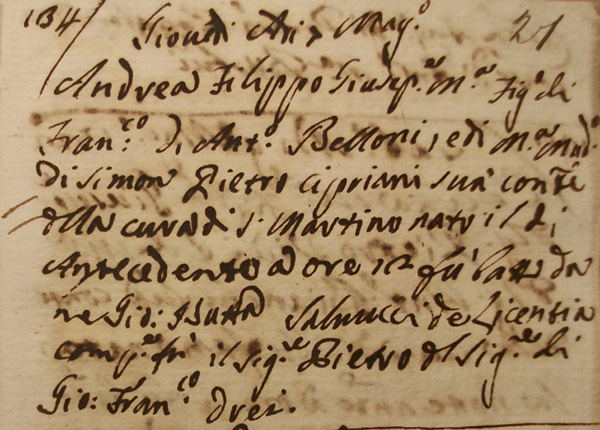 134 Giovedì Adi 7 Mag.o 27
Andrea Filippo Giusep.e M.a Fig.o di
Fran.co di Ant.o Belloni, e di M.a Mad.a
di Simon Pietro Cipriani sua cons.te
della cura di S. Martino nato il dì
Antecedente a ore 12 fù batt. da
me Gio: Batta Salvucci de Licentia
comp.re fù il sig.re Pietro del Sig.re di
Gio: Fran.co drei.